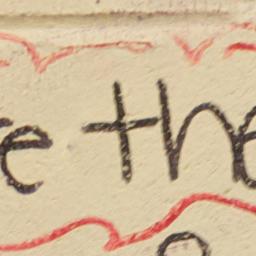 e the